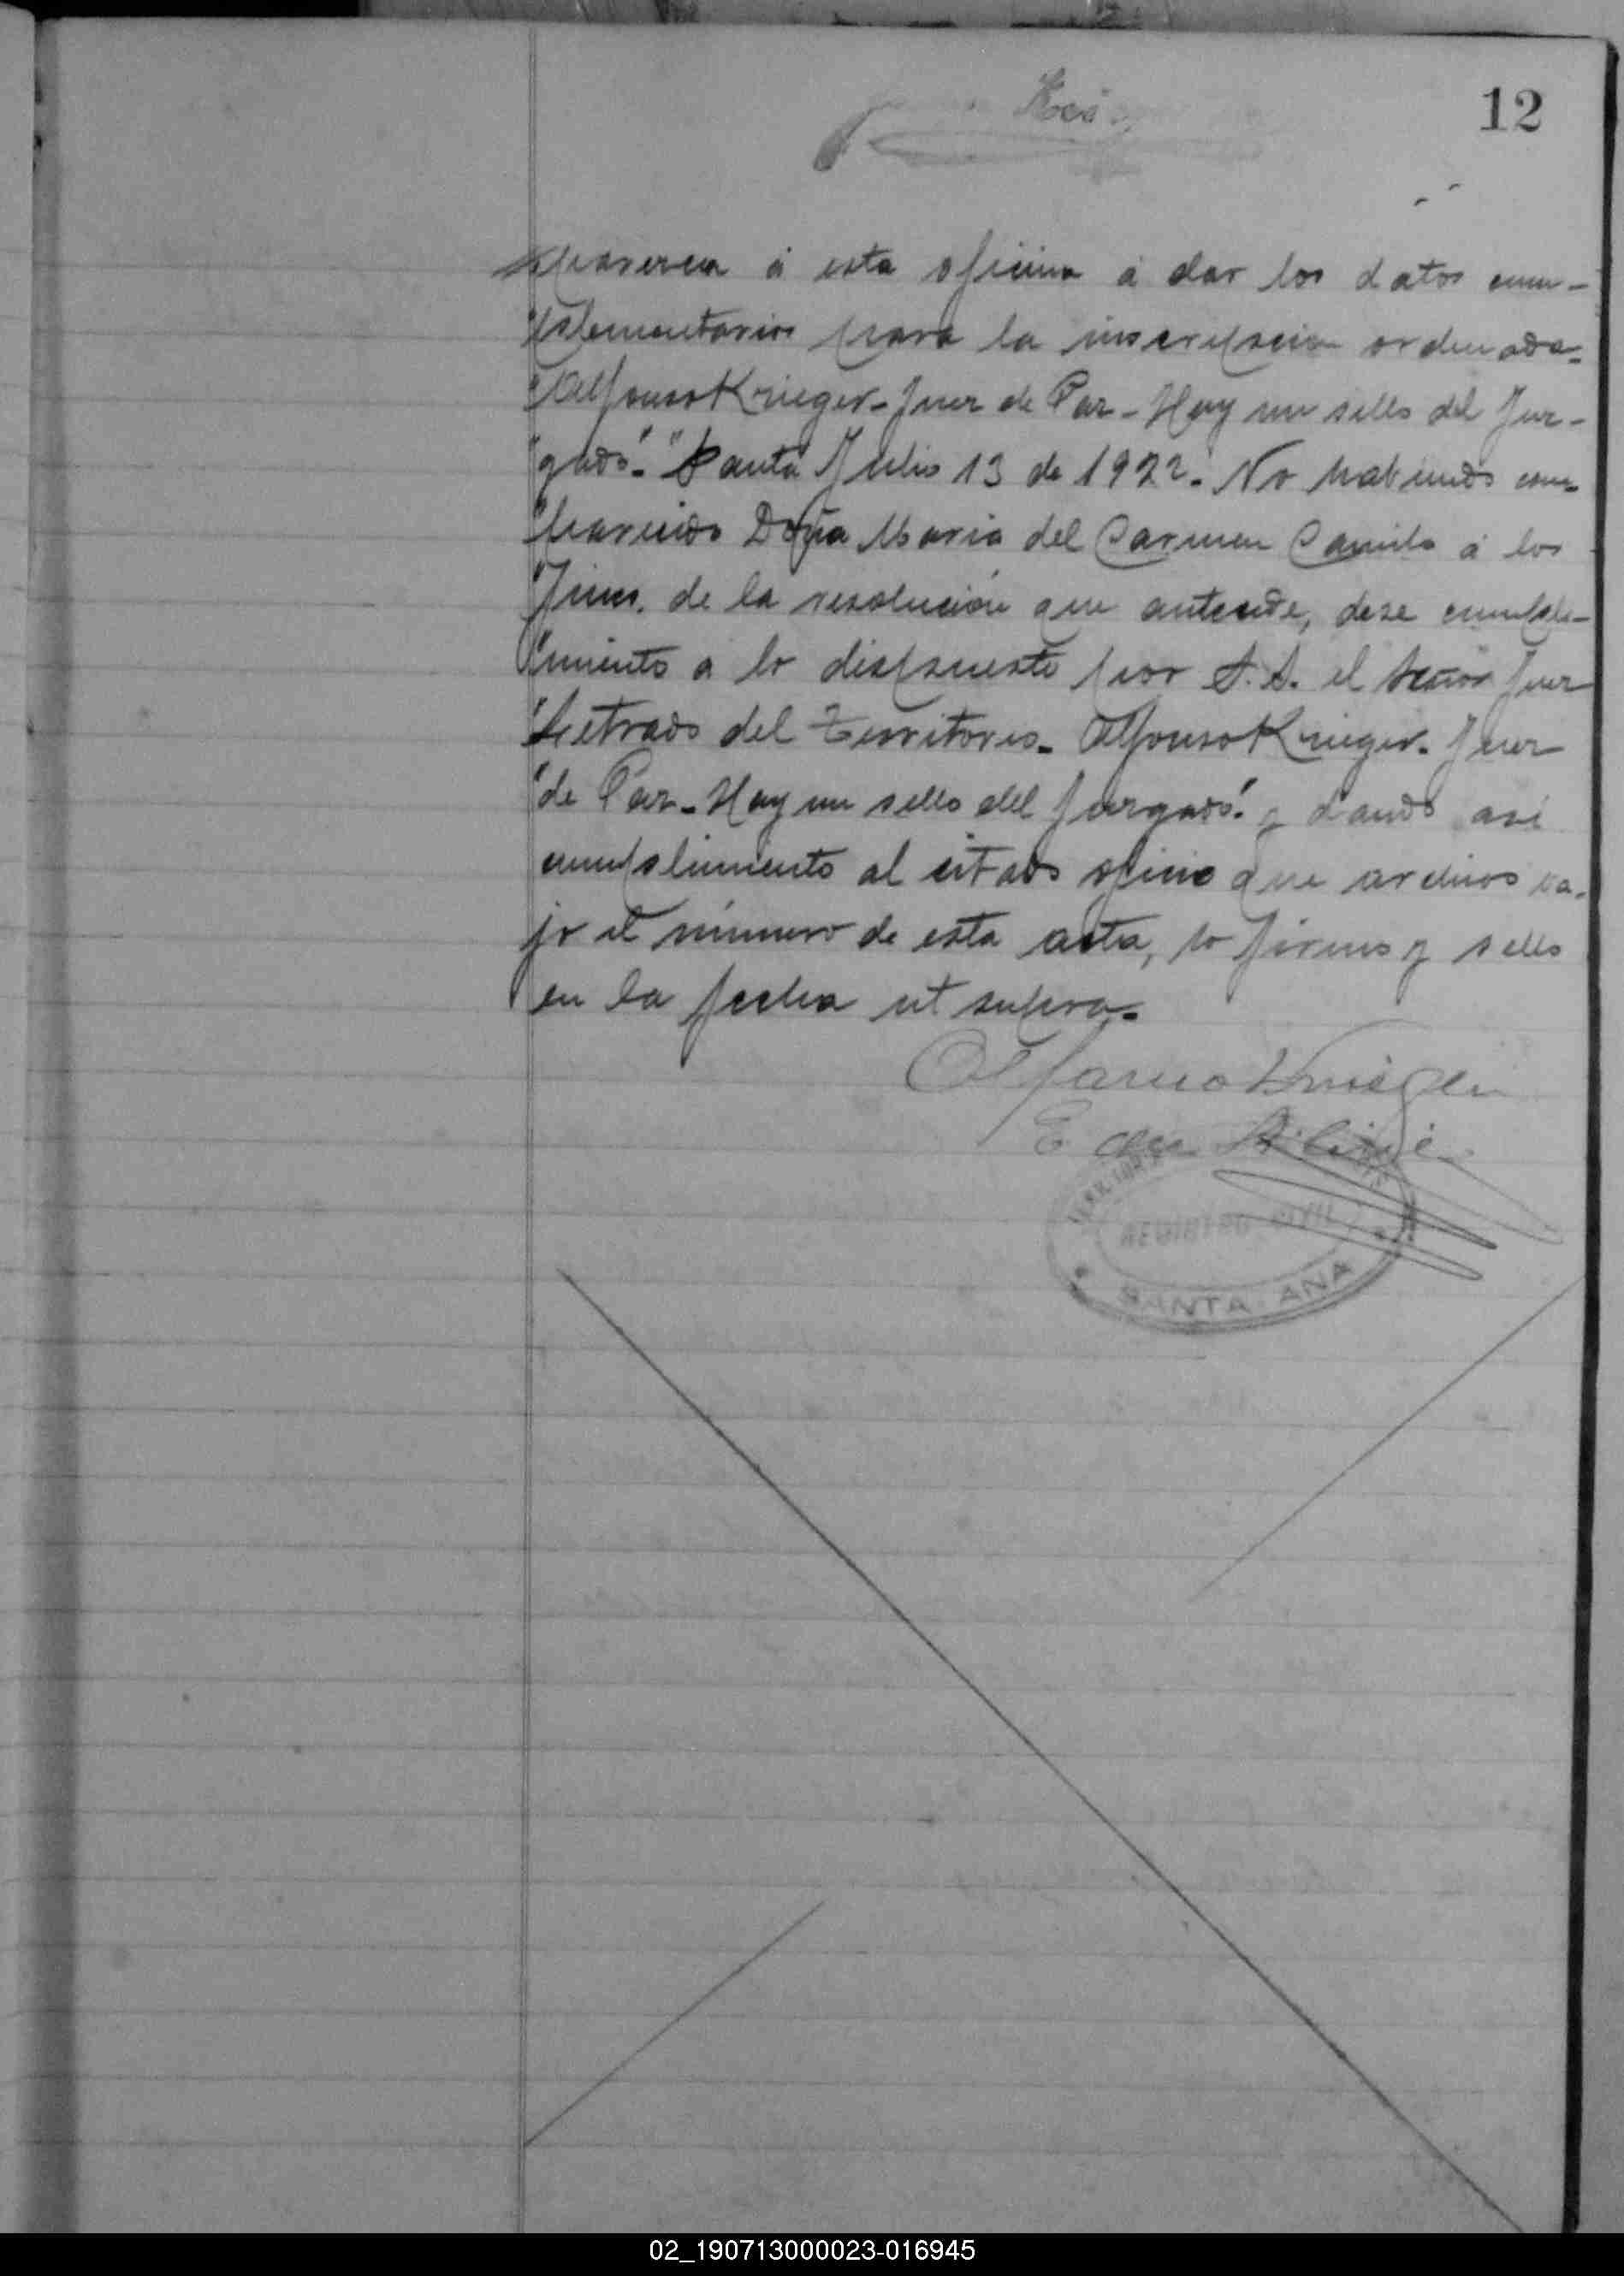 12
"parezca á esta oficina á dar los datos com-
"plementarios para la inscripcion ordenada-
"Alfonso Krieger- Juez de Paz- Hay un sello del Juz-
"gado"- "Santa Julio 13 de 1922. No habiendo com-
"parecido Doña Maria del Carmen Camilo á los
"fines de la resolución que antecede, dese cumpli-
"miento a lo dispuesto por S.S. el Señor Juez
"Letrado del Territorio- Alfonso Krieger- Juez
"de Paz- Hay un sello del Juzgado" y dando asi
cumplimiento al citado oficio que archivo ba-
jo el número de esta acta, lo firmo y sello
en la fecha ut supra-
Alfonso Krieger
REGISTRO CIVIL
SANTA ANA
02_190713000023-016945